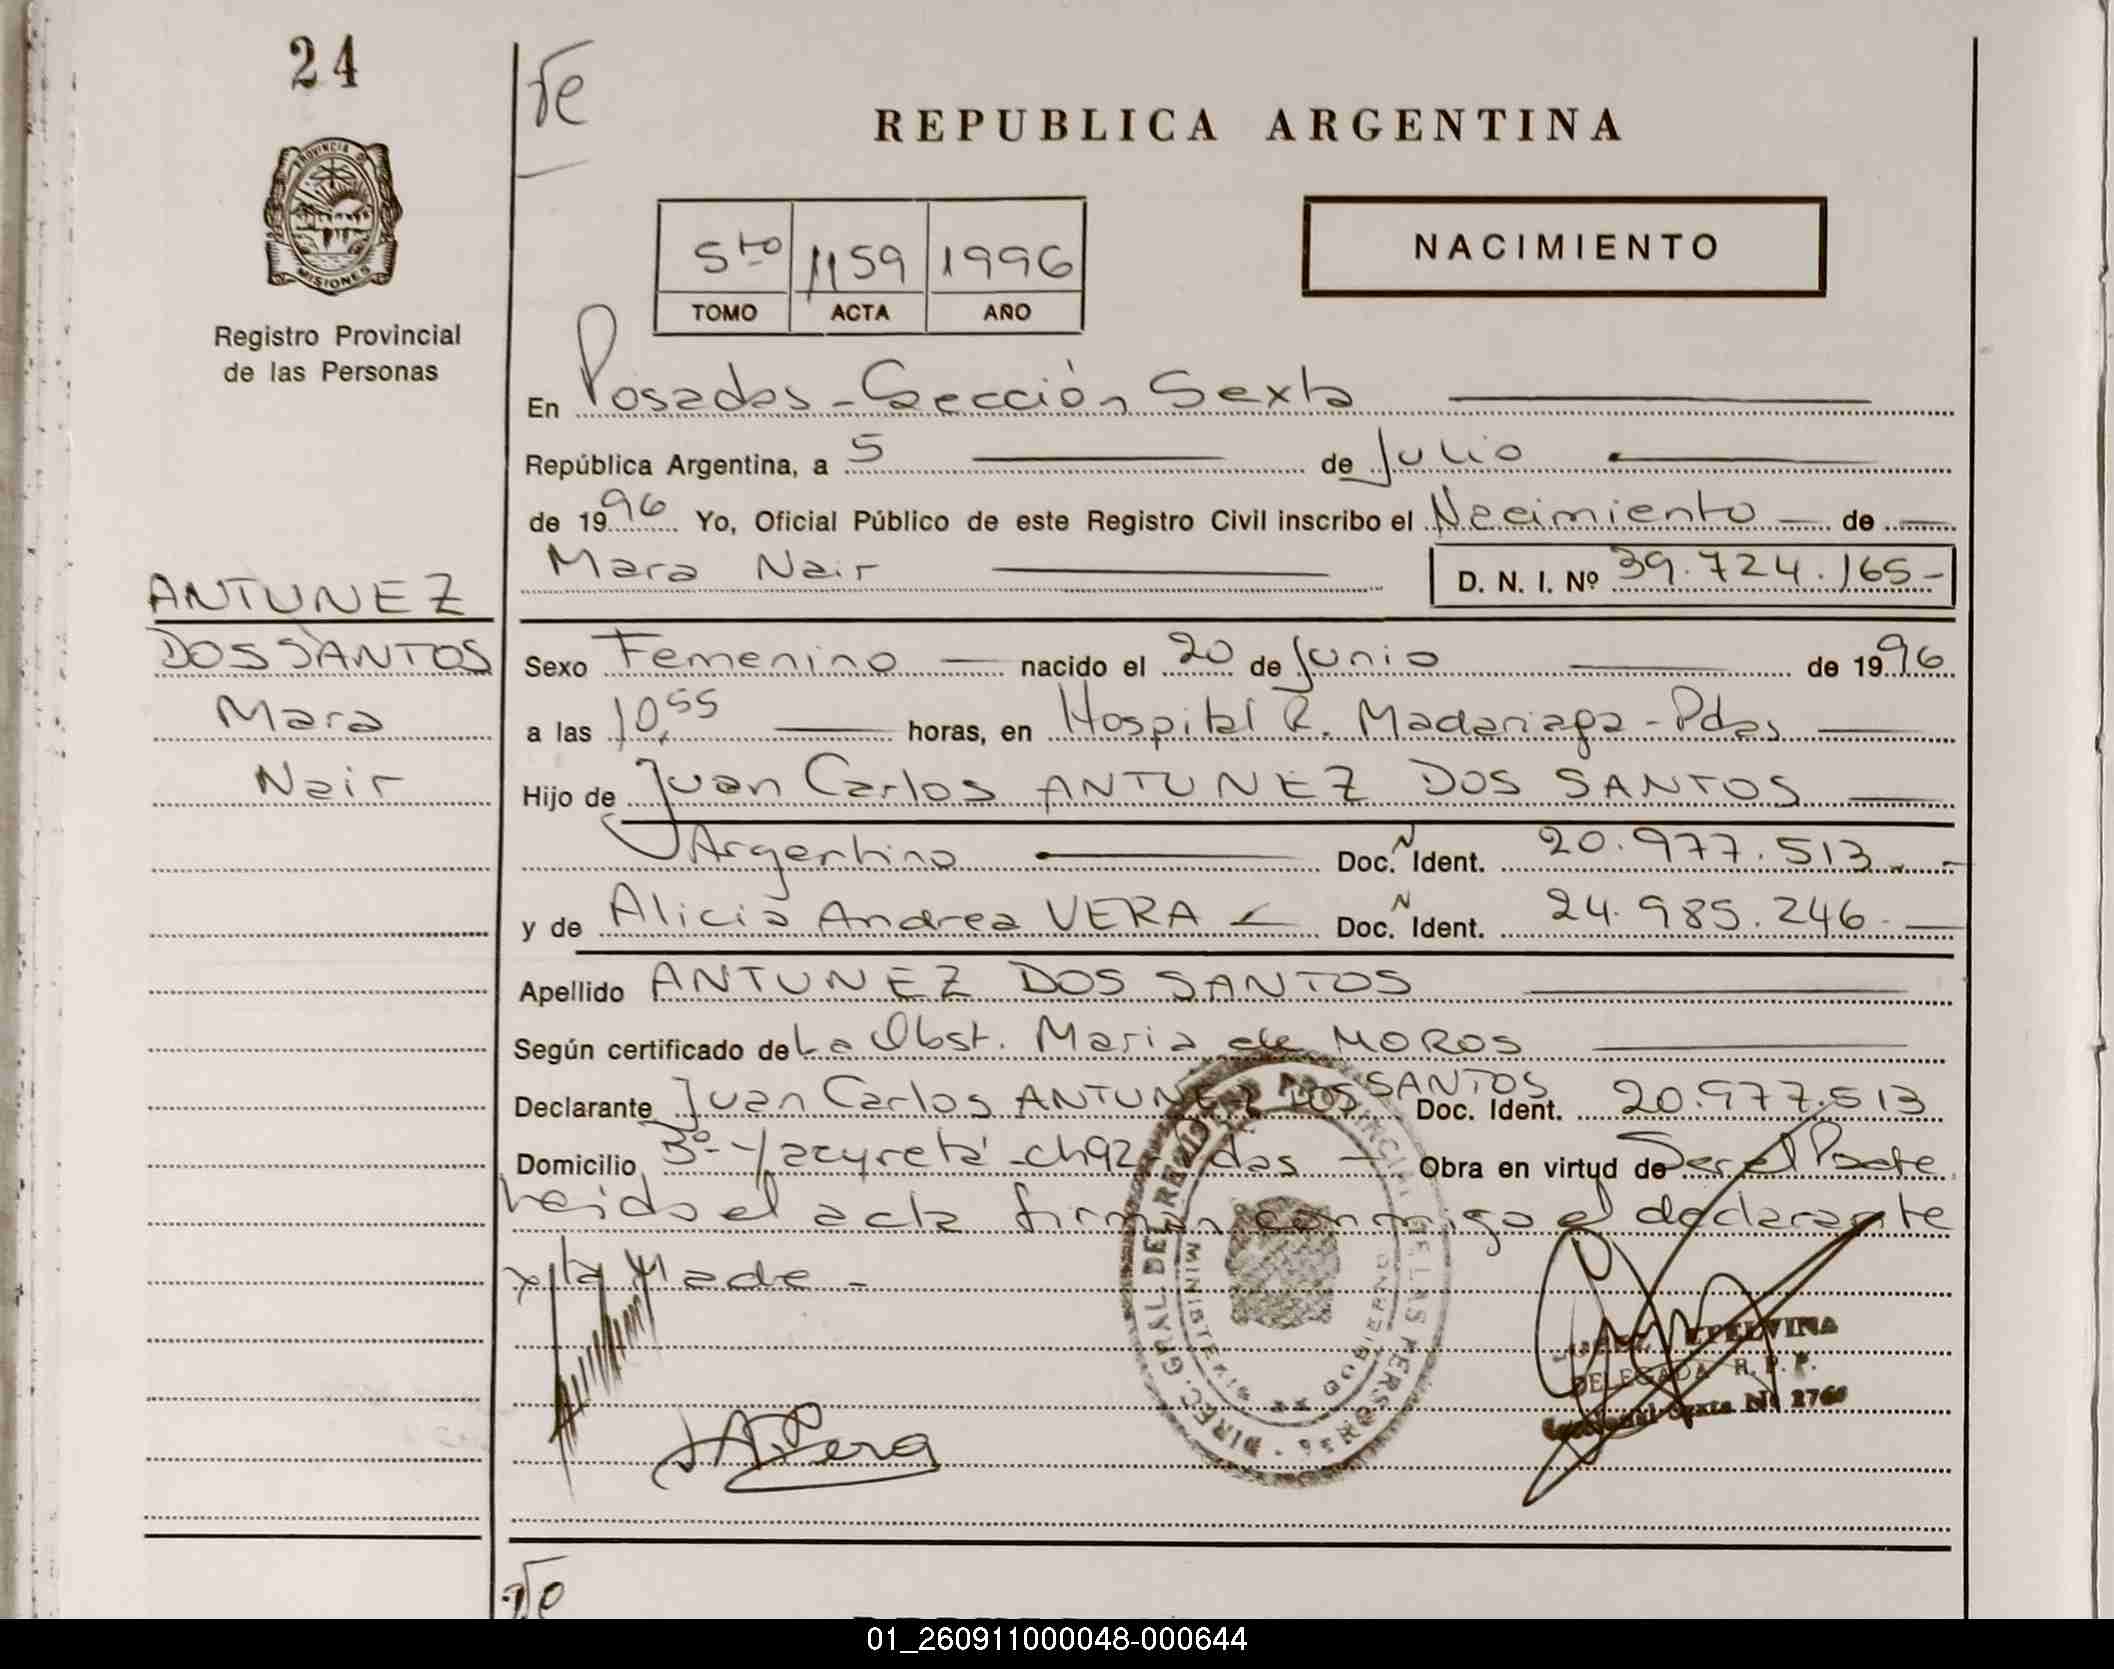 24
PROVINCIA DE
MISIONES
Registro Provincial
de las Personas
REPUBLICA ARGENTINA
5to 1159 1996
TOMO ACTA AÑO
NACIMIENTO
En Posadas - Sección Sexta
República Argentina, a 5 de Julio
de 1996 Yo, Oficial Público de este Registro Civil inscribo el Nacimiento de
Mara Nair D. N. I. Nº 39.724.165-
ANTUNEZ
DOS SANTOS
Mara
Nair
Sexo Femenino nacido el 20 de Junio de 1996
a las 10,55 horas, en Hospital R. Madariaga - Pdas
Hijo de Juan Carlos ANTUNEZ DOS SANTOS
Argentino Doc. N Ident. 20.977.513
y de Alicia Andrea VERA Doc. N Ident. 24.985.246
Apellido ANTUNEZ DOS SANTOS
Según certificado de La Obst. Maria de MOROS
Declarante Juan Carlos ANTUNEZ DOS SANTOS Doc. Ident. 20.977.513
Domicilio Bº Yacyretá - ch92 Pdas Obra en virtud de Ser el Padre
Leido el acta firman conmigo el declarante
y la Madre -
DIREC. GRAL DEL REGISTRO PROVINCIAL DE LAS PERSONAS
MINISTERIO GOBIERNO
ETELVINA
DELEGADA R. P. P.
Sexta Nº 2760
AVera
01_260911000048-000644